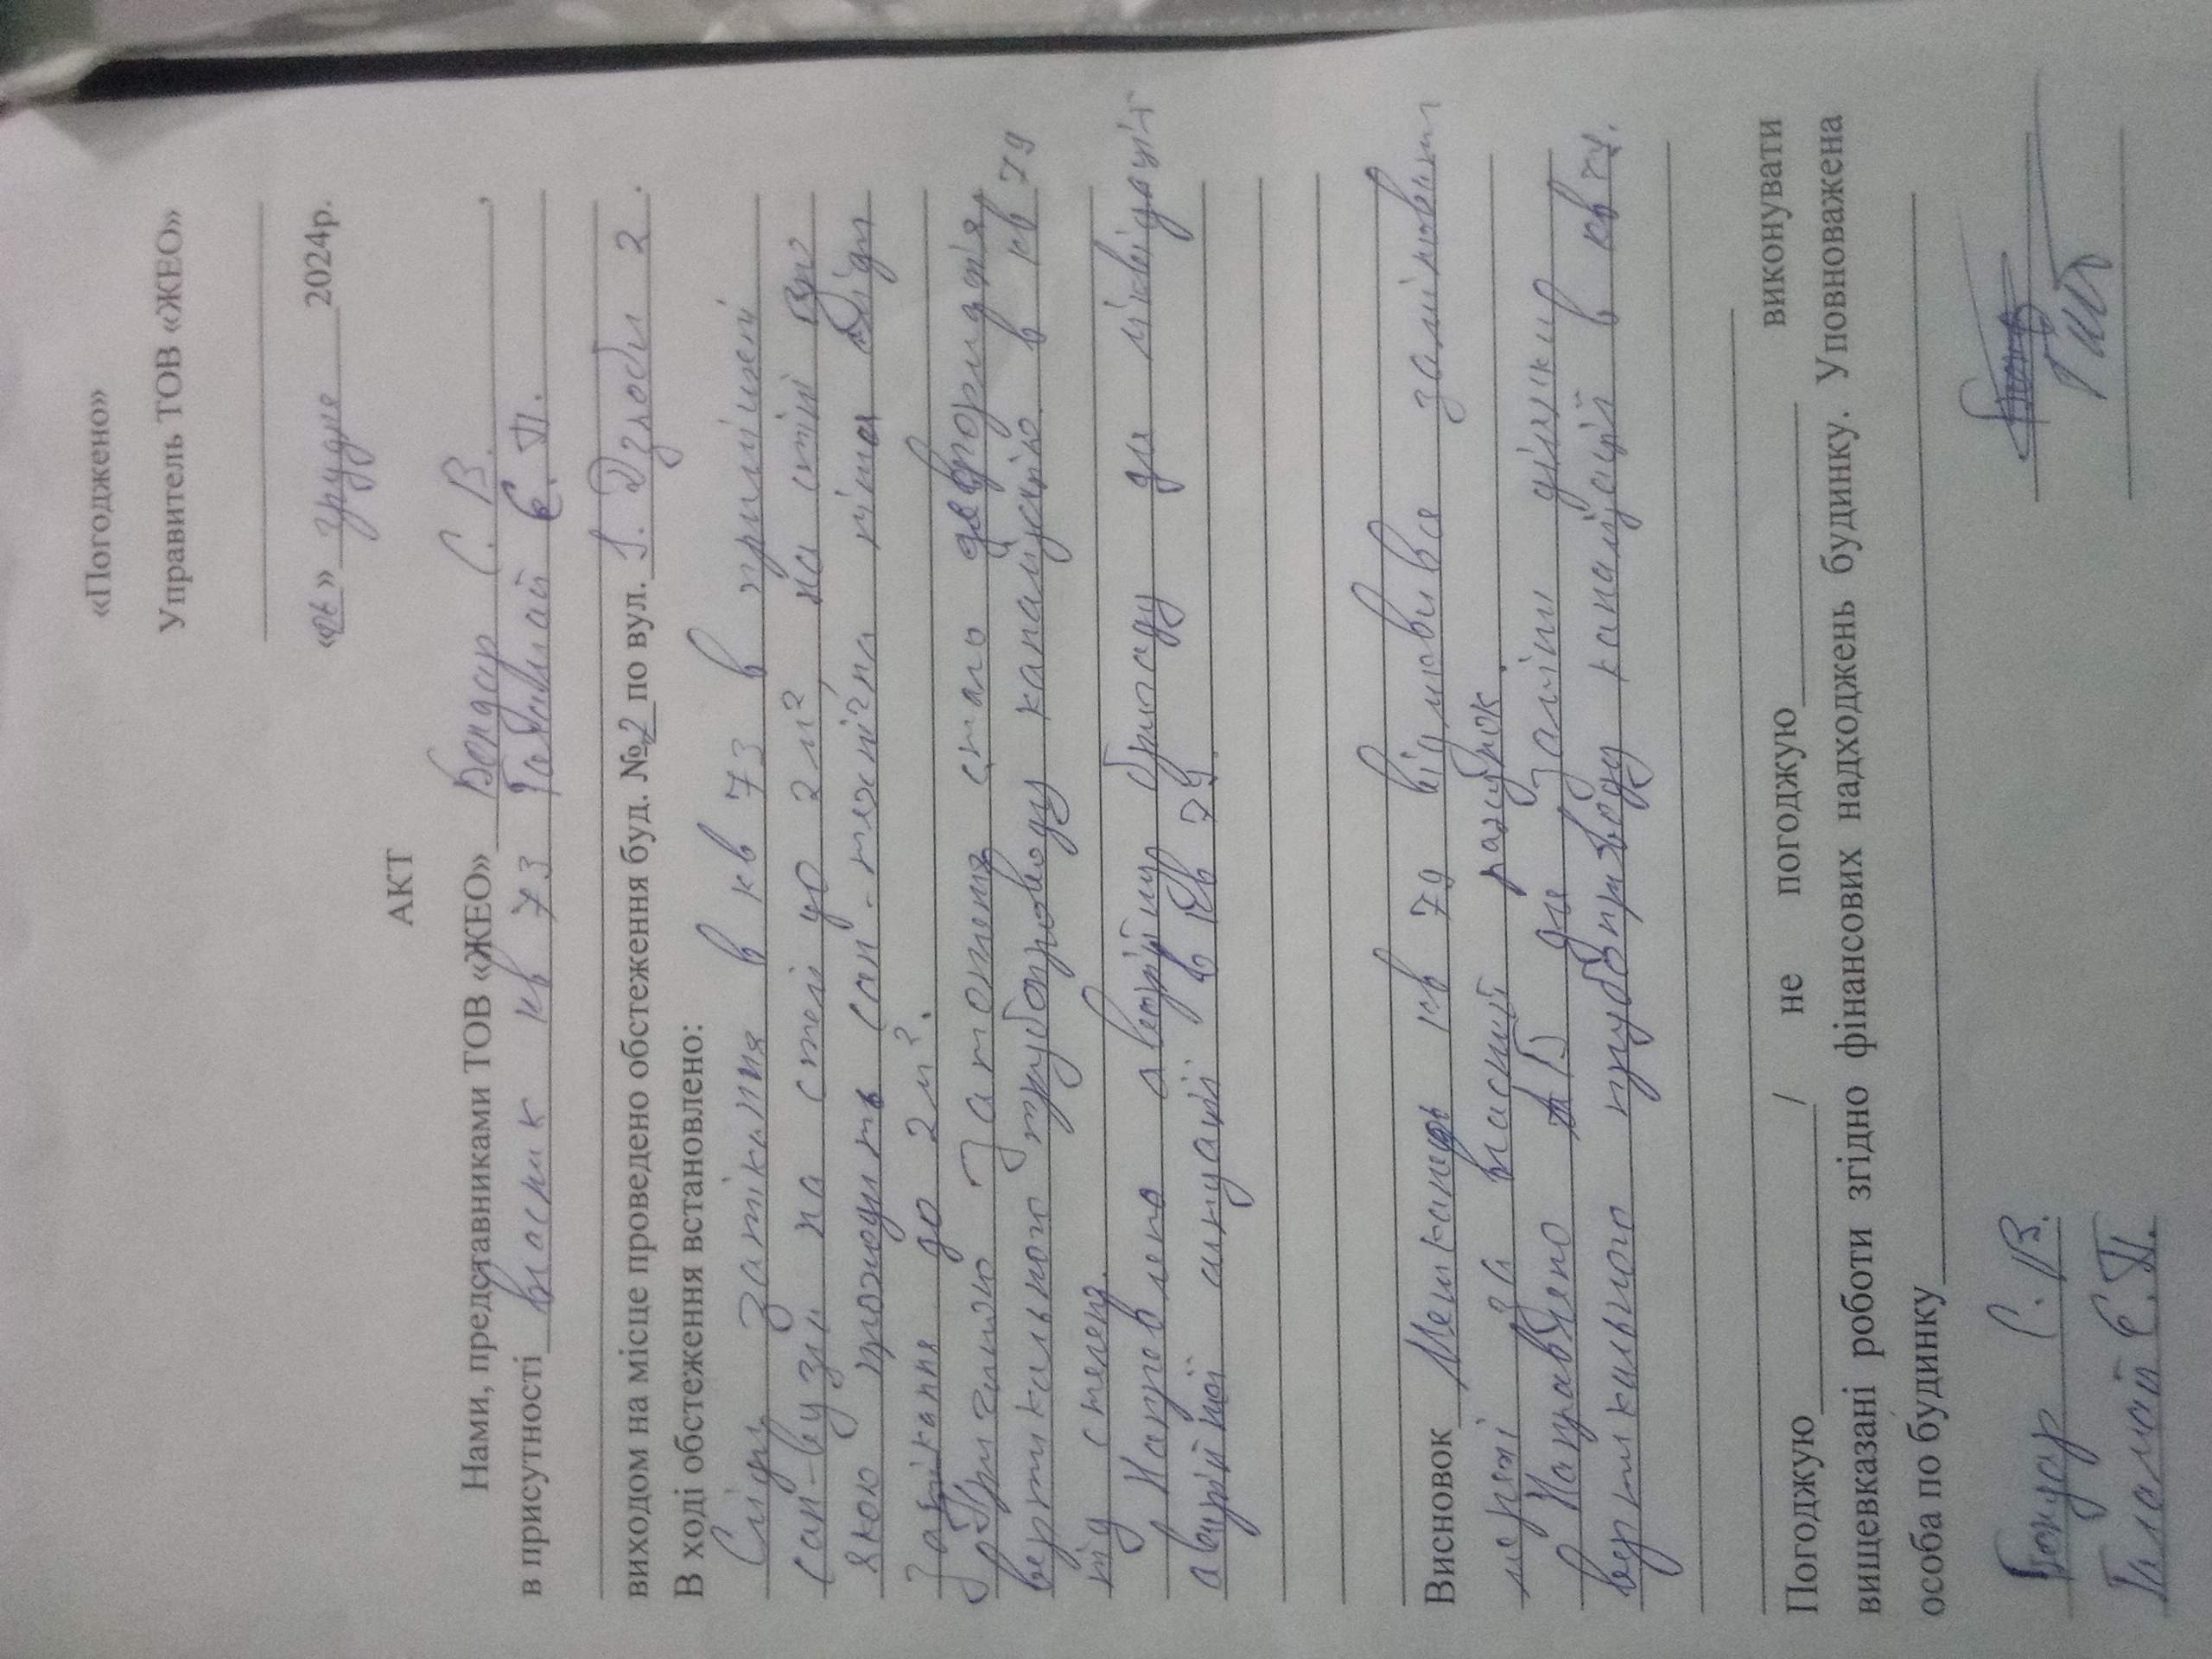 «Погоджено»
Управитель ТОВ «ЖЕО»
«26» грудня 2024р.
АКТ
Нами, представниками ТОВ «ЖЕО» Бондар С. В. ,
в присутності власник кв 73 Є. П.
виходом на місце проведено обстеження буд. №2 по вул. Дзюби 2.
В ході обстеження встановлено:
Сліди затікання в кв 73 в приміщені
сан-вузли на стелі до 2 м², на стіні
якою проходить сан-технічна сліди
Затікання до 2 м².
Причиною Затоплення стало
вертикального трубопроводу каналізацію в кв 79
під стелею.
Направлено аварійну бригаду для ліквідації
аварійної ситуації в кв 79.
Висновок Мешканець кв 79 відмовився замінювати
мережі за власний рахунок.
Направлено для заміни ділянки
вертикального трубопроводу каналізації в кв 79.
Погоджую / не погоджую виконувати
вищевказані роботи згідно фінансових надходжень будинку. Уповноважена
особа по будинку
Бондар С. В.
Є. П.